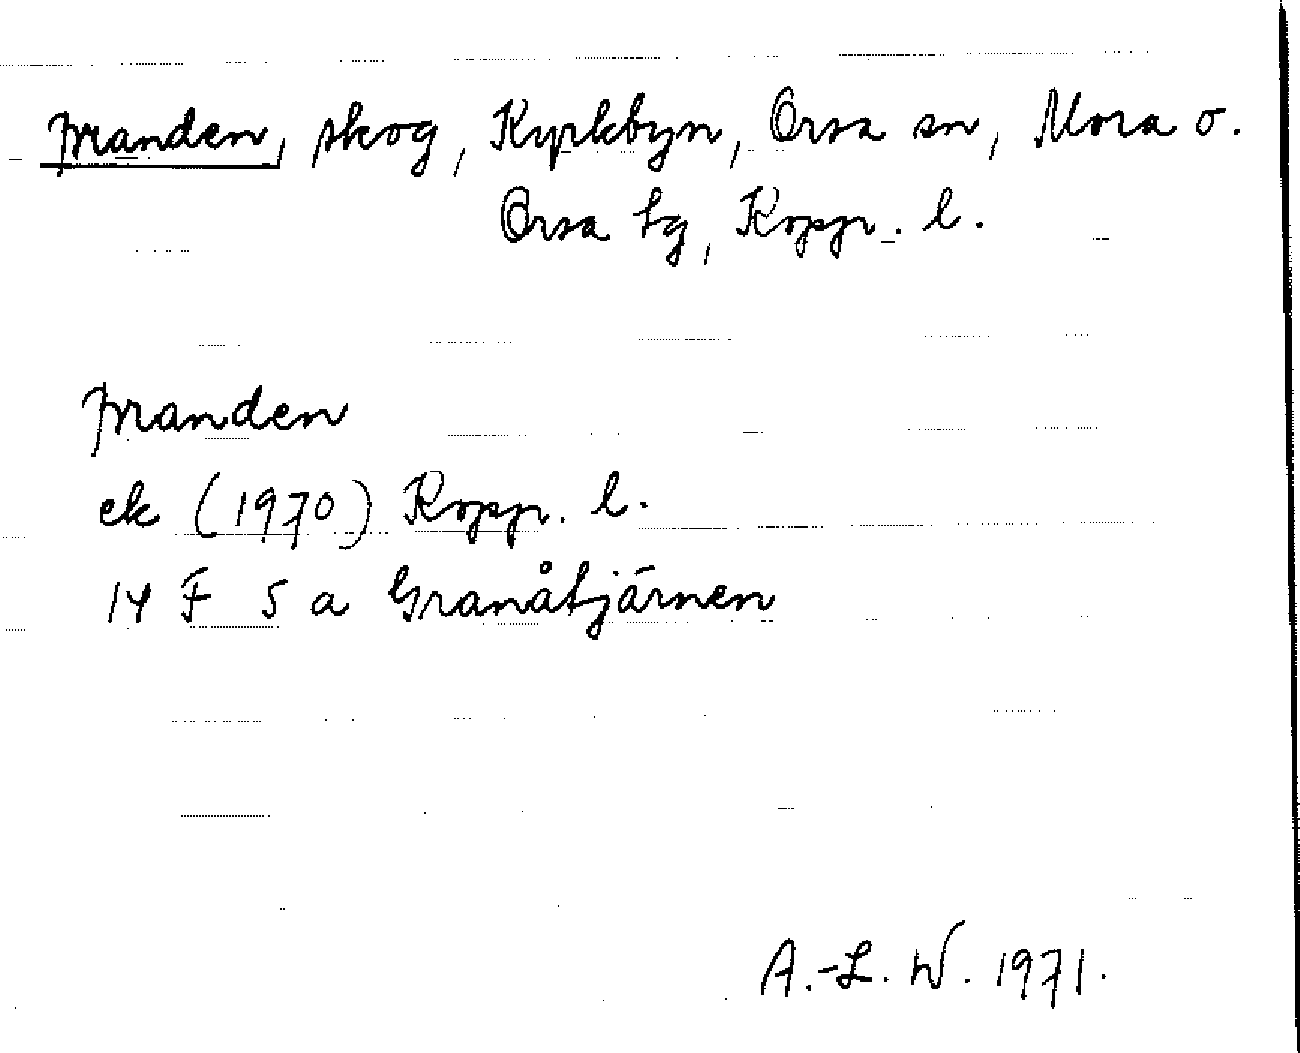 Branden, skog, Kyrkbyn, Orsa sn, Mora o.
Orsa tg, Kopp. l.
Branden
ek (1970) Kopp. l.
14 F 5 a Granåtjärnen
A.-L. W. 1971.